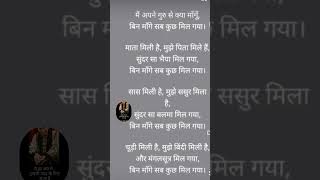 मैं अपने गुरु से क्या माँगूँ,
बिन माँगे सब कुछ मिल गया।
माता मिली है, मुझे पिता मिले हैं,
सुंदर सा भैया मिल गया,
बिन माँगे सब कुछ मिल गया।
सास मिली है, मुझे ससुर मिला
है,
सुंदर सा बलमा मिल गया,
बिन माँगे सब कुछ मिल गया।
चूड़ी मिली है, मुझे बिंदी मिली है,
और मंगलसूत्र मिल गया,
बिन माँगे सब कुछ मिल गया।